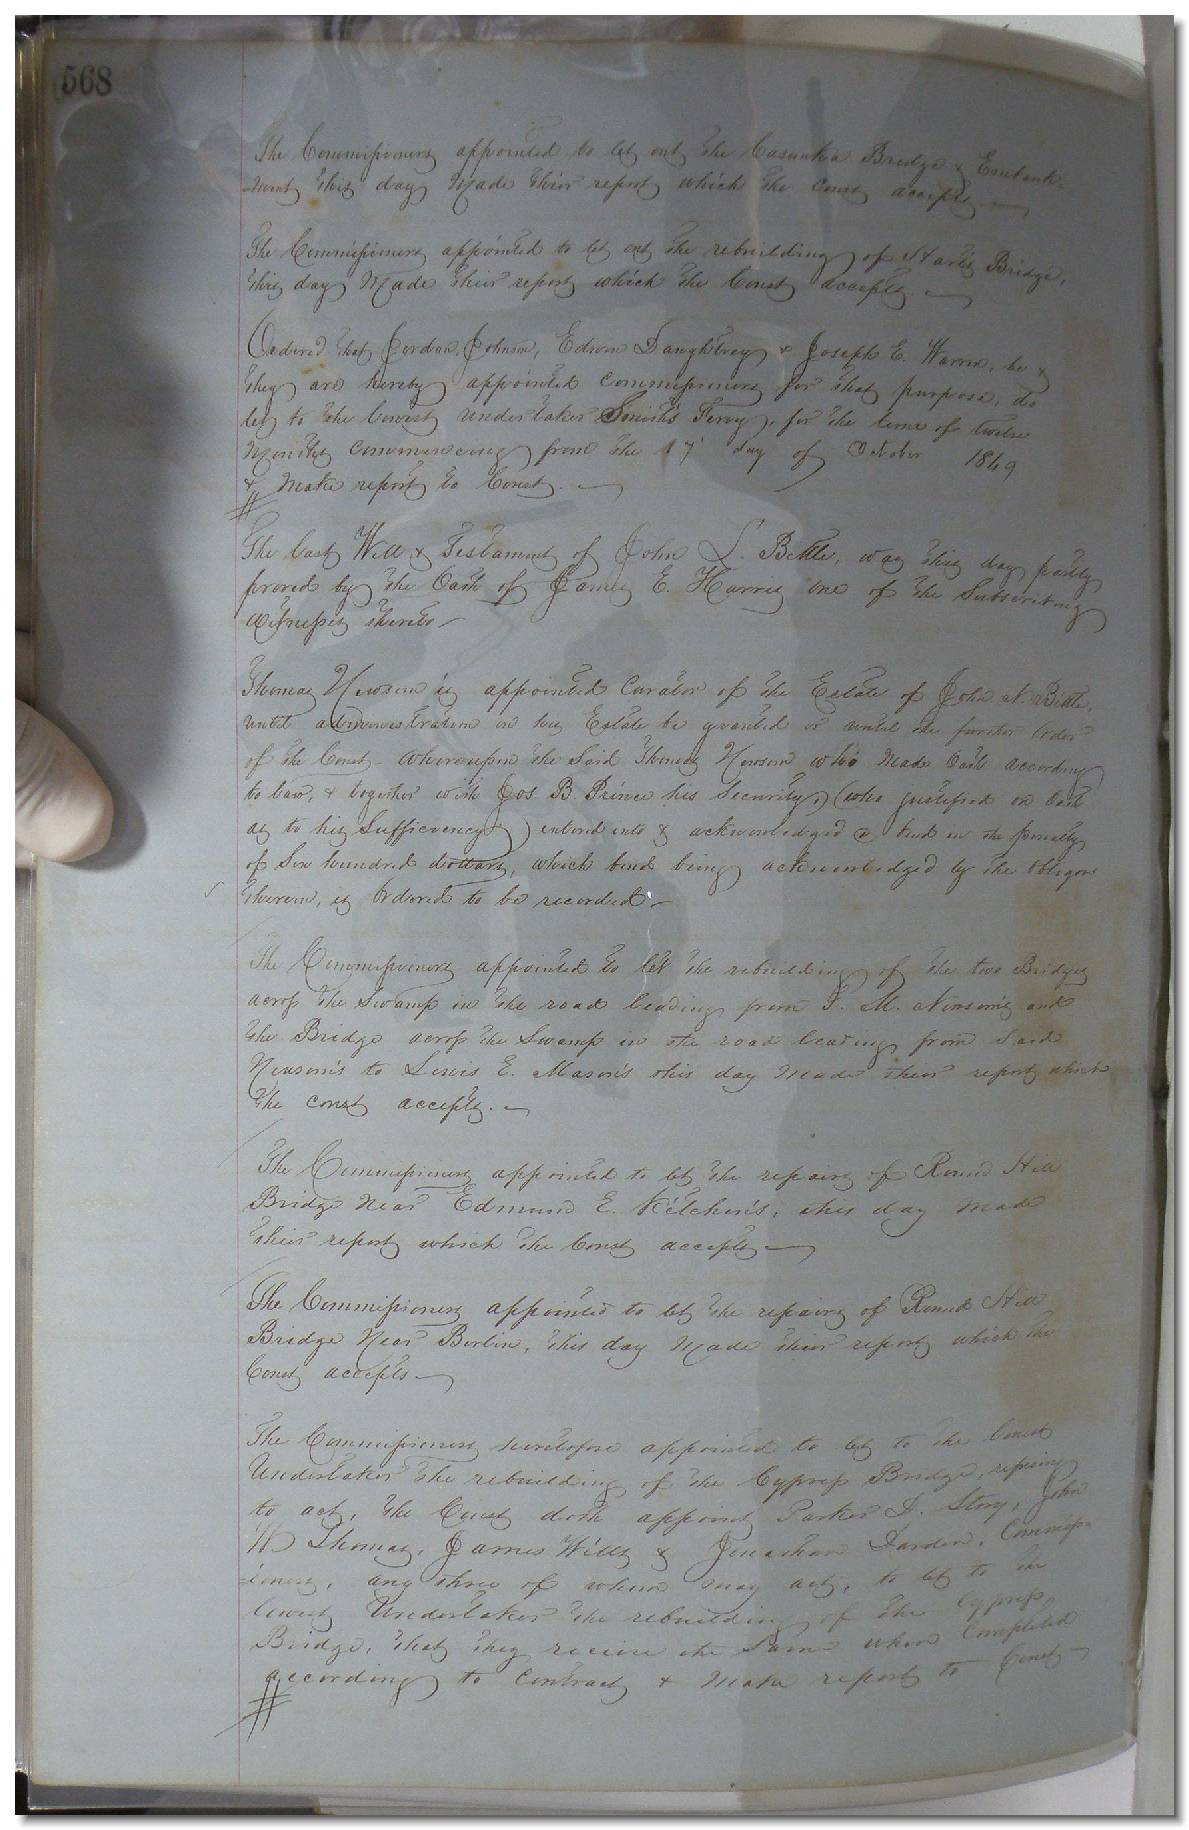 568
The Commissioners appointed to let out the Bridge & Embank-
-ment this day Made their report which the Court accepts
The Commissioners appointed to let out the rebuilding of Harts Bridge,
this day Made their report which the Court accepts.
Ordered that Jordan Johnson, Edwin Daughtrey & Joseph E. Warren, be &
they are hereby appointed Commissioners for that purpose, do
let to the lowest undertaker Smith's Ferry, for the time of twelve
Months commencing from the 17 day of October 1849
& Make report to Court.
The last Will & Testament of John L. Bittle, was this day partly
proved by the Oath of James E. Harris one of the Subscribing
witnesses thereto
Thomas Newsom is appointed Curator of the Estate of John N. Bittle,
until administration on his Estate be granted or until the further order
of the Court - Whereupon the Said Thomas Newsom who Made Oath according
to law, & together with Jos. B. Prince his Security, (who justified on Oath
as to his Sufficiency) entered into & acknowledged a bond in the penalty
of Six hundred dollars, which bond being acknowledged by the obligors
therein, is Ordered to be recorded.
The Commissioners appointed to let the rebuilding of the two Bridges
across the Swamp in the road leading from M. Newsom's and
the Bridge across the Swamp in the road leading from Said
Newsom's to Lewis E. Mason's this day Made their report which
the court accepts.
The Commissioners appointed to let the repairs of Round Hill
Bridge Near Edmund E. Kitchen's, this day Made
their report which the Court accepts
The Commissioners appointed to let the repairs of Round Hill
Bridge Near Berlin, this day Made their report which the
Court accepts
The Commissioners heretofore appointed to let to the lowest
Undertaker the rebuilding of the Cypress Bridge, refusing
to act, the Court doth appoint Parker D. Story, John
W Thomas, James Wills & Jonathan Darden, Commiss-
-ioners, any three of whom may act, to let to the
lowest Undertaker the rebuilding of the Cypress
Bridge, that they receive the Same when Completed
according to Contract & Make report to Court